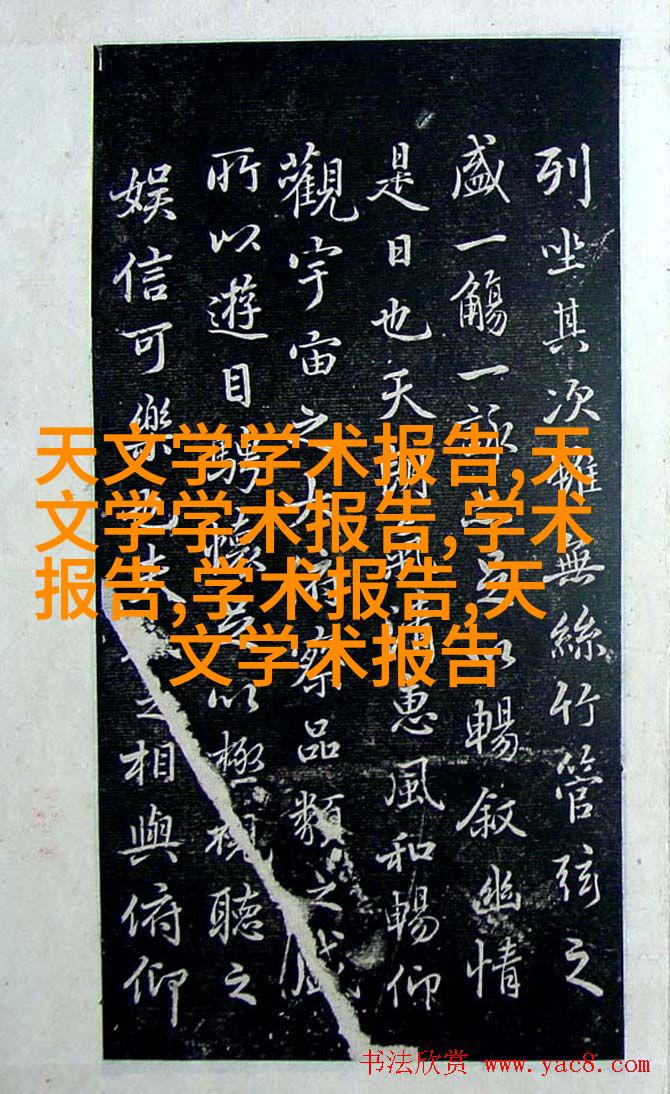 列坐其次雖無絲竹管弦之
盛一觴一詠亦足以暢叙幽情
是日也天朗氣清惠風和暢仰
觀宇宙之大俯察品類之盛
所以遊目騁懷足以極視聽之
娛信可樂也夫之相與俯仰
天文学学术报告,天
文学学术报告,学术
报告,学术报告,天
文学术报告
书法欣赏 www.yac8.com